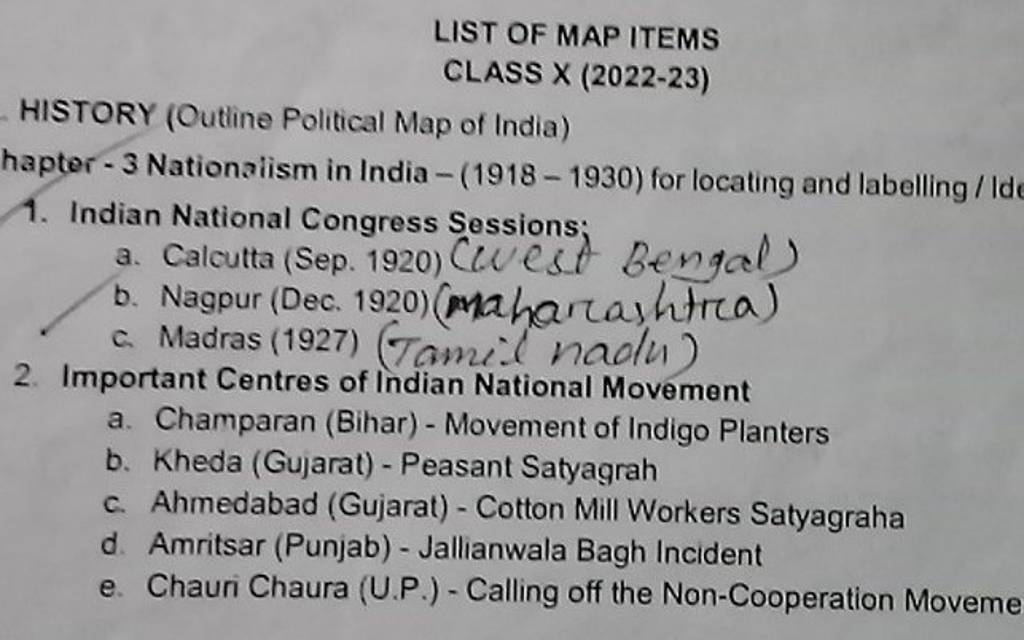 LIST OF MAP ITEMS
CLASS X (2022-23)
. HISTORY (Outline Political Map of India)
hapter - 3 Nationalism in India – (1918 – 1930) for locating and labelling / Ide
1. Indian National Congress Sessions:
a. Calcutta (Sep. 1920) (West Bengal)
b. Nagpur (Dec. 1920) (maharashtra)
c. Madras (1927) (Tamil nadu)
2. Important Centres of Indian National Movement
a. Champaran (Bihar) - Movement of Indigo Planters
b. Kheda (Gujarat) - Peasant Satyagrah
c. Ahmedabad (Gujarat) - Cotton Mill Workers Satyagraha
d. Amritsar (Punjab) - Jallianwala Bagh Incident
e. Chauri Chaura (U.P.) - Calling off the Non-Cooperation Moveme